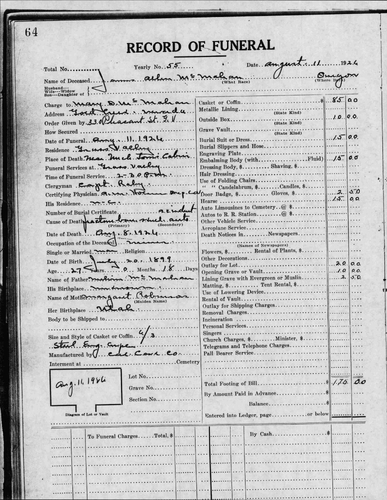 64
RECORD OF FUNERAL
Total No. Yearly No. 55 Date August 11 1926
Name of Deceased James Allen McMahan Oregon
(What Race) (Where Born)
Husband—
Wife—Widow
Son—Daughter of
Charge to Mary McMahan
Address
Order Given by Pleasant St. G.V.
How Secured
Date of Funeral Aug. 11 1926
Residence Grass Valley
Place of Death Near Uncle Toms Cabin
Funeral Services at Grass Valley
Time of Funeral Service 2:30 P.M.
Clergyman Capt. Raby
Certifying Physician
His Residence N.C.
Number of Burial Certificate accident
Cause of Death fracture base skull auto
(Primary) (Secondary)
Date of Death Aug. 8 1926
Occupation of the Deceased Miner
Single or Married Religion
Date of Birth July 20 1899
Age 27 Years 0 Months 18 Days
Name of Father McMahan
His Birthplace unknown
Name of Mother Margaret Robinson
(Maiden Name)
Her Birthplace Utah
Body to be Shipped to
Size and Style of Casket or Coffin 6/3
Manufactured by Cal. Cask. Co.
Interment at Cemetery
Aug. 11, 1926
Diagram of Lot or Vault
Lot No.
Grave No.
Section No.
Casket or Coffin 85 00
Metallic Lining
(State Kind)
Outside Box 10 00
(State Kind)
Grave Vault
(State Kind)
Burial Suit or Dress 15 00
Burial Slippers and Hose
Engraving Plate
Embalming Body (with Fluid) 15 00
Dressing Body, $ Shaving, $
Hair Dressing
Use of Folding Chairs
" " Candelabrum, $ Candles, $
Door Badge, $ Gloves, $ 2 50
Hearse 15 00
Auto Limousines to Cemetery, @ $
Autos to R. R. Station @ $
Other Vehicle Service
Aeroplane Service
Death Notices in Newspapers
(Names of Newspapers)
Flowers, $ Rental of Plants, $
Other Decorations
Outlay for Lot 20 00
Opening Grave or Vault 10 00
Lining Grave with Evergreen or Muslin 2 50
Matting, $ Tent Rental, $
Use of Lowering Device
Rental of Vault
Outlay for Shipping Charges
Removal Charges
Incineration
Personal Services
Singers
Church Charges, $ Minister, $
Telegrams and Telephone Charges
Pall Bearer Service
Total Footing of Bill 175 00
By Amount Paid in Advance
Balance
Entered into Ledger, page or below
To Funeral Charges, Total, $ By Cash $